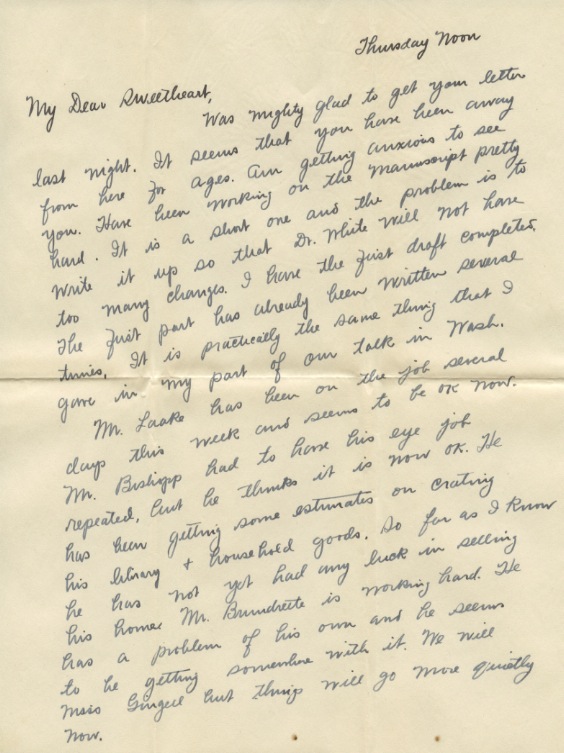 Thursday Noon
My Dear Sweetheart,
Was mighty glad to get your letter
last night. It seems that you have been away
from here for ages. Am getting anxious to see
you. Have been working on the manuscript pretty
hard. It is a short one and the problem is to
write it up so that Dr. White will not have
too many changes. I have the first draft completed.
The first part has already been written several
times. It is practically the same thing that I
gave in my part of our talk in Wash.
Mr. Laake has been on the job several
days this week and seems to be OK now.
Mr. Bishopp had to have his eye job
repeated, but he thinks it is now OK. He
has been getting some estimates on crating
his library + household goods. So far as I know
he has not yet had any luck in selling
his home. Mr. Brundrette is working hard. He
has a problem of his own and he seems
to be getting somewhere with it. We will
miss but things will go more quietly
now.